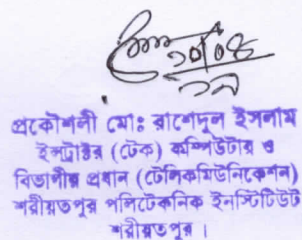 প্রকৌশলী মোঃ রাশেদুল ইসলাম
ইন্সট্রাক্টর (টেক) কম্পিউটার ও
বিভাগীয় প্রধান (টেলিকমিউনিকেশন)
শরীয়তপুর পলিটেকনিক ইনস্টিটিউট
শরীয়তপুর।